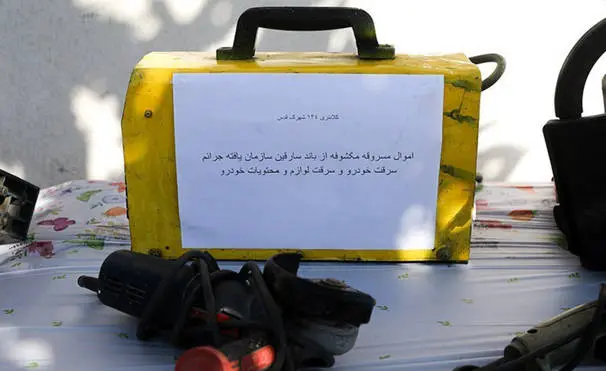 کلانتری ۱۳۴ شهرک قدس
اموال مسروقه مکشوفه از باند سارقین سازمان یافته جرائم
سرقت خودرو و سرقت لوازم و محتویات خودرو